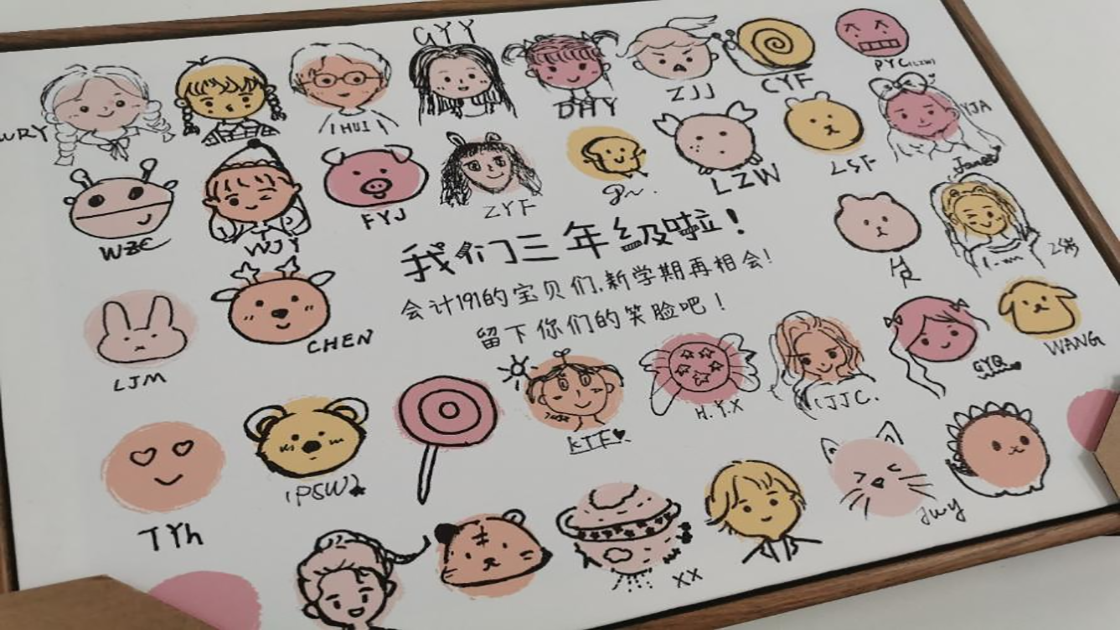 GYY
WRY
1HUI
DHY
ZJJ
CYF
PYC(LZW)
WZC
WJY
FYJ
ZYF
LZW
LSF
YJA
Janee
我们三年级啦!
会计191的宝贝们,新学期再相会!
留下你们的笑脸吧!
LJM
CHEN
WANG
GYQ
H.Y.X
JJC.
KTF
TYh
PSW
XX
Jwy